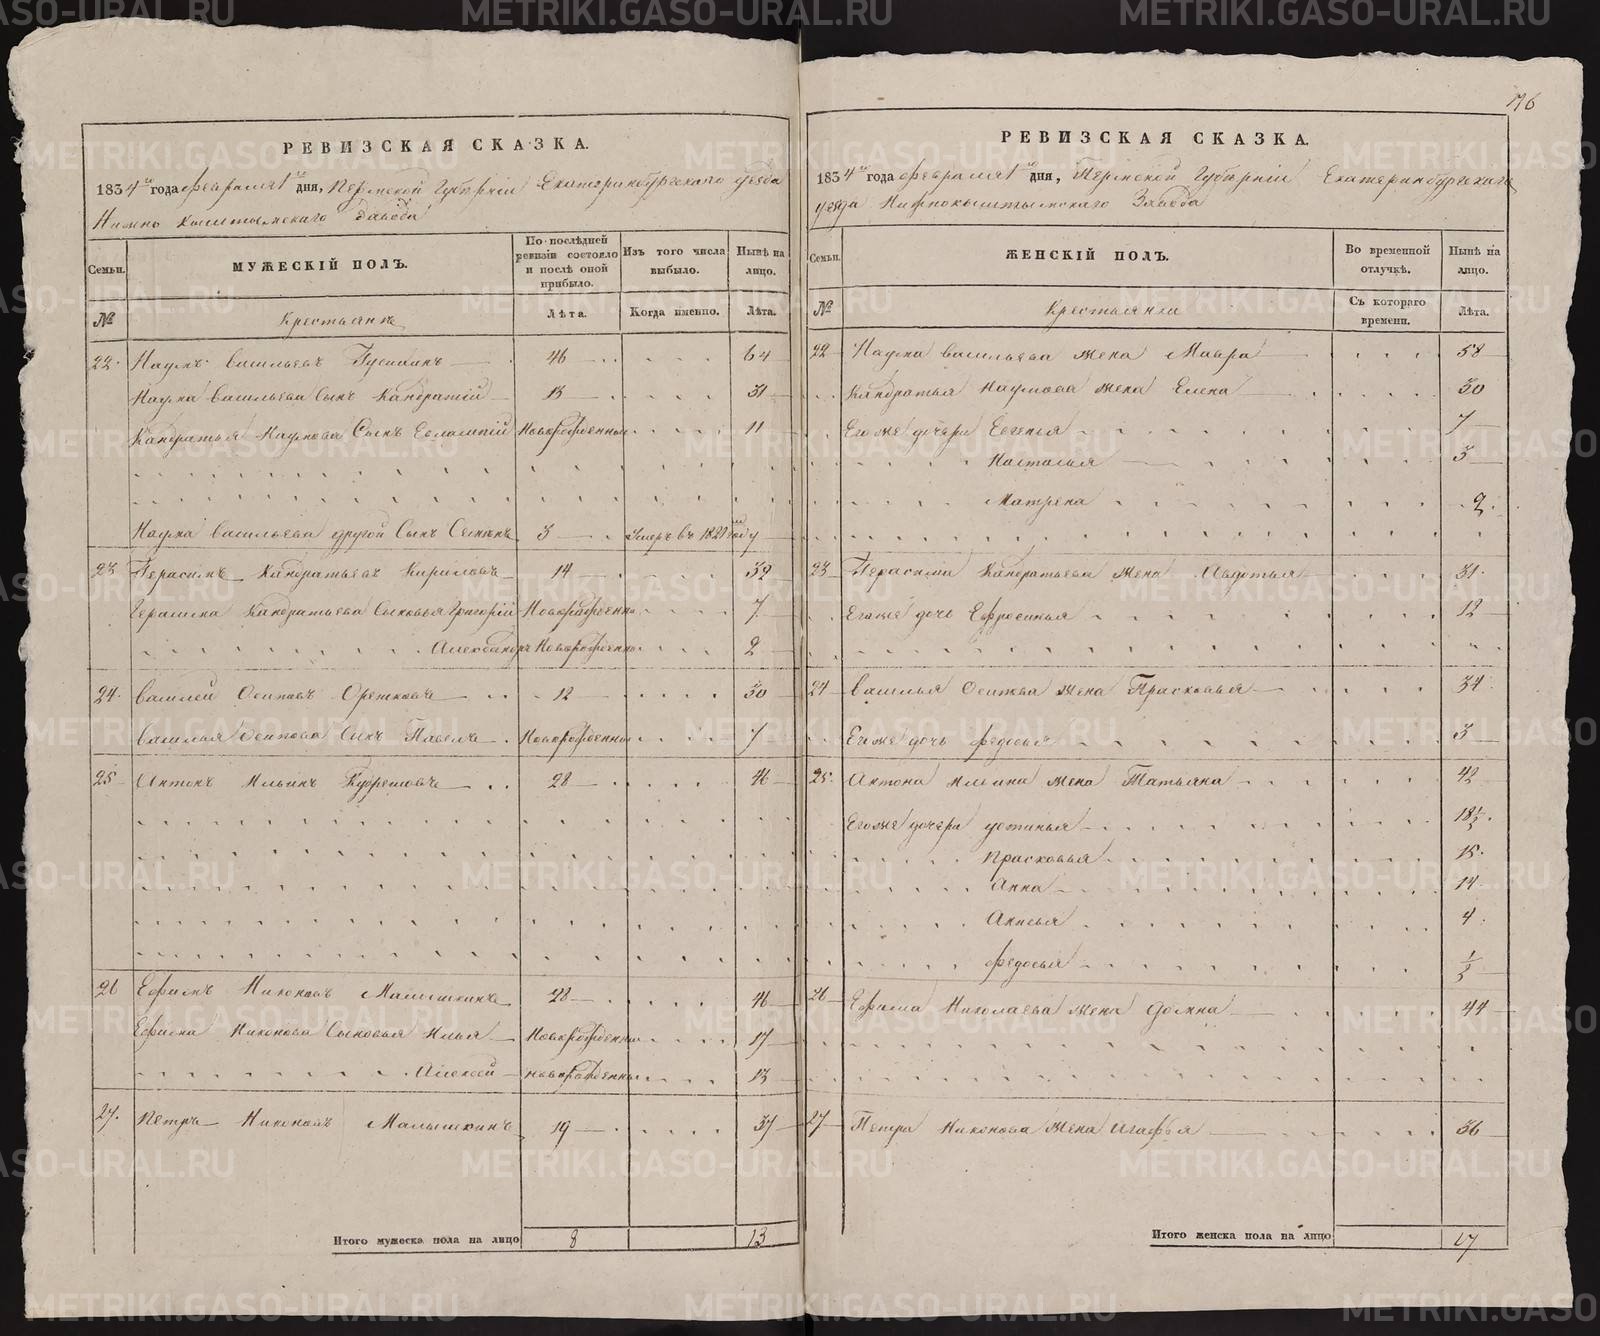 176
РЕВИЗСКАЯ СКАЗКА.
1834го года февраля 1го дня, Пермской Губернии Екатеринбургскаго уезда
Нижно Кыштымскаго Завода
Семьи.
МУЖЕСКІЙ ПОЛЪ.
По послѣдней ревизіи состояло и послѣ оной прибыло.
Изъ того числа выбыло.
Нынѣ на лицо.
№
Крестьянъ
Лѣта.
Когда именно.
Лѣта.
22. Наумъ Васильевъ 46 64
Наума Васильева Сынъ Кандратій 13 31
Кандратья Наумова Сынъ Евлампій Новорожденный 11
Наума Васильева другой Сынъ Семенъ 3 Умеръ въ 1821 году
23 Герасимъ Кандратьевъ Кириловъ 14 32
Герасима Кандратьева Сыновья Григорій Новорожденны 7
Александръ Новорожденны 2
24. Василей Осиповъ Орешковъ 12 30
Василья Осипова Сынъ Павелъ Новорожденный 7
25 Антонъ Ильинъ 28 46
26 Ефимъ Никоновъ Малышкинъ 28 46
Ефима Никонова Сыновья Илья Новорожденны 17
Алексей новорожденны 13
27. Петръ Никоновъ Малышкинъ 19 37
Итого мужеска пола на лицо 8 13
РЕВИЗСКАЯ СКАЗКА.
1834го года февраля 1го дня, Пермской Губерніи Екатеринбургскаго
уезда Нижнокыштымскаго Завода
Семьи.
ЖЕНСКІЙ ПОЛЪ.
Во временной отлучкѣ.
Нынѣ на лицо.
№
Крестьянки
Съ котораго времени.
Лѣта.
22 Наума Васильева жена Мавра 58
Кандратья Наумова жена Елена 30
Его же дочери Евгенья 7
Настасья 3
Матрена 2
23 Герасима Кандратьева жена Авдотья 31
Его же дочь Ефросинья 12
24 Василья Осипова жена Прасковья 34
Его же дочь Федосья 3
25. Антона Ильина жена Татьяна 42
Его же дочери Устинья 18½
Прасковья 15
Анна 14
Анисья 4
Федосья ½
26 Ефима Николаева жена Домна 44
27 Петра Никонова жена Агафья 36
Итого женска пола на лицо 17
METRIKI.GASO-URAL.RU